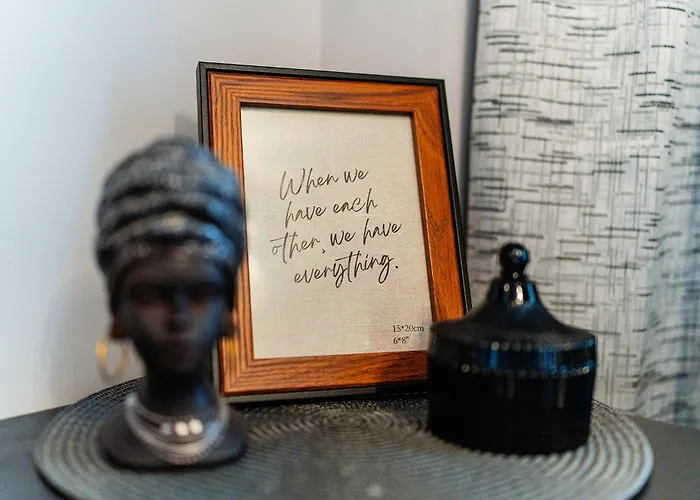 When we
have each
other, we have
everything.
15*20cm
6*8"